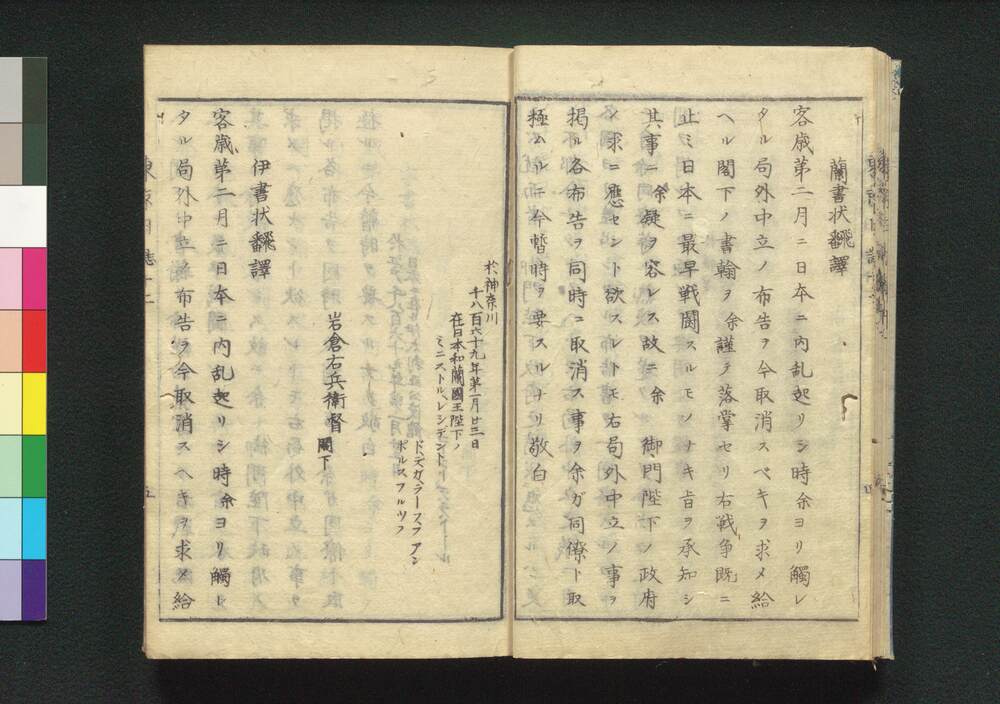 蘭書状飜譯
客歳第二月ニ日本ニ内乱起リシ時余ヨリ觸レ
タル局外中立ノ布告ヲ今取消スベキヲ求メ給
ヘル閣下ノ書翰ヲ余謹テ落掌セリ右戦争既ニ
止ミ日本ニ最早戦闘スルモノナキ旨ヲ承知シ
其事ニ余疑ヲ容レス故ニ余 御門陛下ノ政府
ノ求ニ應セント欲スレトモ右局外中立ノ事ヲ
掲ル各布告ヲ同時ニ取消ス事ヲ余ガ同僚ト取
極ムルニ今暫時ヲ要スルナリ敬白
於神奈川
千八百六十九年第一月廿三日
在日本和蘭國王陛下ノ
ミニストルレシデント
ド、デガラーフフアン
ポルスフルツク
岩倉右兵衛督 閣下
伊書状飜譯
客歳第二月ニ日本ニ内乱起リシ時余ヨリ觸レ
タル局外中立ノ布告ヲ今取消スヘキヲ求メ給